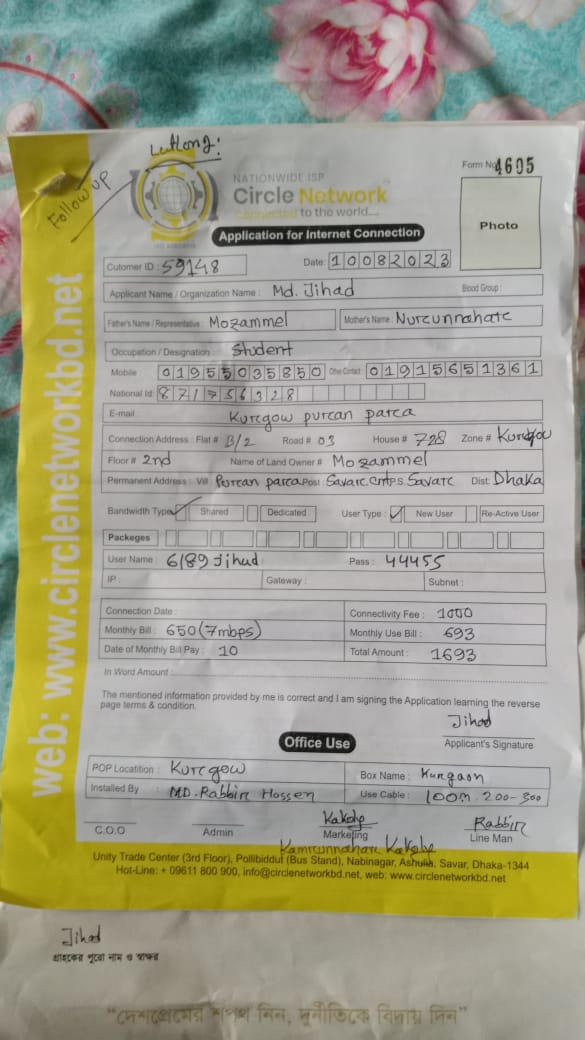 Follow up
NATIONWIDE ISP
Circle Network
Connected to the world....
Form No 4605
Photo
Application for Internet Connection
Cutomer ID : 59148 Date: 10082023
Applicant Name / Organization Name : Md. Jihad Blood Group :
Father's Name / Representative : Mozammel Mother's Name :
Occupation / Designation : Student
Mobile 01955035850 Othe Contact 01915651361
National Id: 871756328
E-mail : Kurgow purcan parca
Connection Address : Flat # B/2 Road # 03 House # 728 Zone #
Floor # 2nd Name of Land Owner # Mozammel
Permanent Address : Vill Purcan parca Post : Savarc. P.S. Savarc Dist: Dhaka
Bandwidth Type Shared Dedicated User Type : New User Re-Active User
Packeges
User Name : 6189 Jihad Pass : 44455
IP : Gateway : Subnet :
Connection Date : Connectivity Fee : 1000
Monthly Bill : 650 (7mbps) Monthly Use Bill : 693
Date of Monthly Bill Pay : 10 Total Amount : 1693
In Word Amount :
The mentioned information provided by me is correct and I am signing the Application learning the reverse
page terms & condition.
Jihad
Applicant's Signature
Office Use
POP Locatition : Kurcgow Box Name : Kurgaon
Installed By : MD. Rabbir Hossen Use Cable : 100m. 200-300
Kakoly Rabbir
C.O.O Admin Marketing Line Man
Kamrunnahar Kakoly
Unity Trade Center (3rd Floor), Pollibiddut (Bus Stand), Nabinagar, Ashulia, Savar, Dhaka-1344
Hot-Line: + 09611 800 900, info@circlenetworkbd.net, web: www.circlenetworkbd.net
web: www.circlenetworkbd.net
Jihad
গ্রাহকের পুরো নাম ও স্বাক্ষর
"দেশপ্রেমের শপথ নিন, দুর্নীতিকে বিদায় দিন"